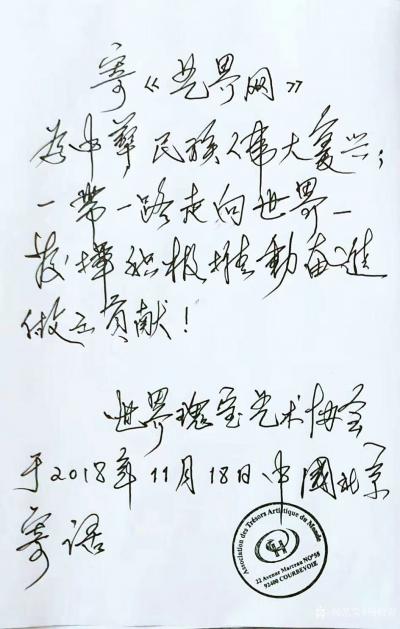 寄《艺界网》
为中华民族伟大复兴；
一带一路走向世界_
发挥积极推動奋進
做云贡献！
世界瑰宝艺术协会
于2018年11月18日中國北京
寄语
Association des Trésors Artistique du Monde
22 Avenue Marceau NO°58
92400 COURBEVOIE